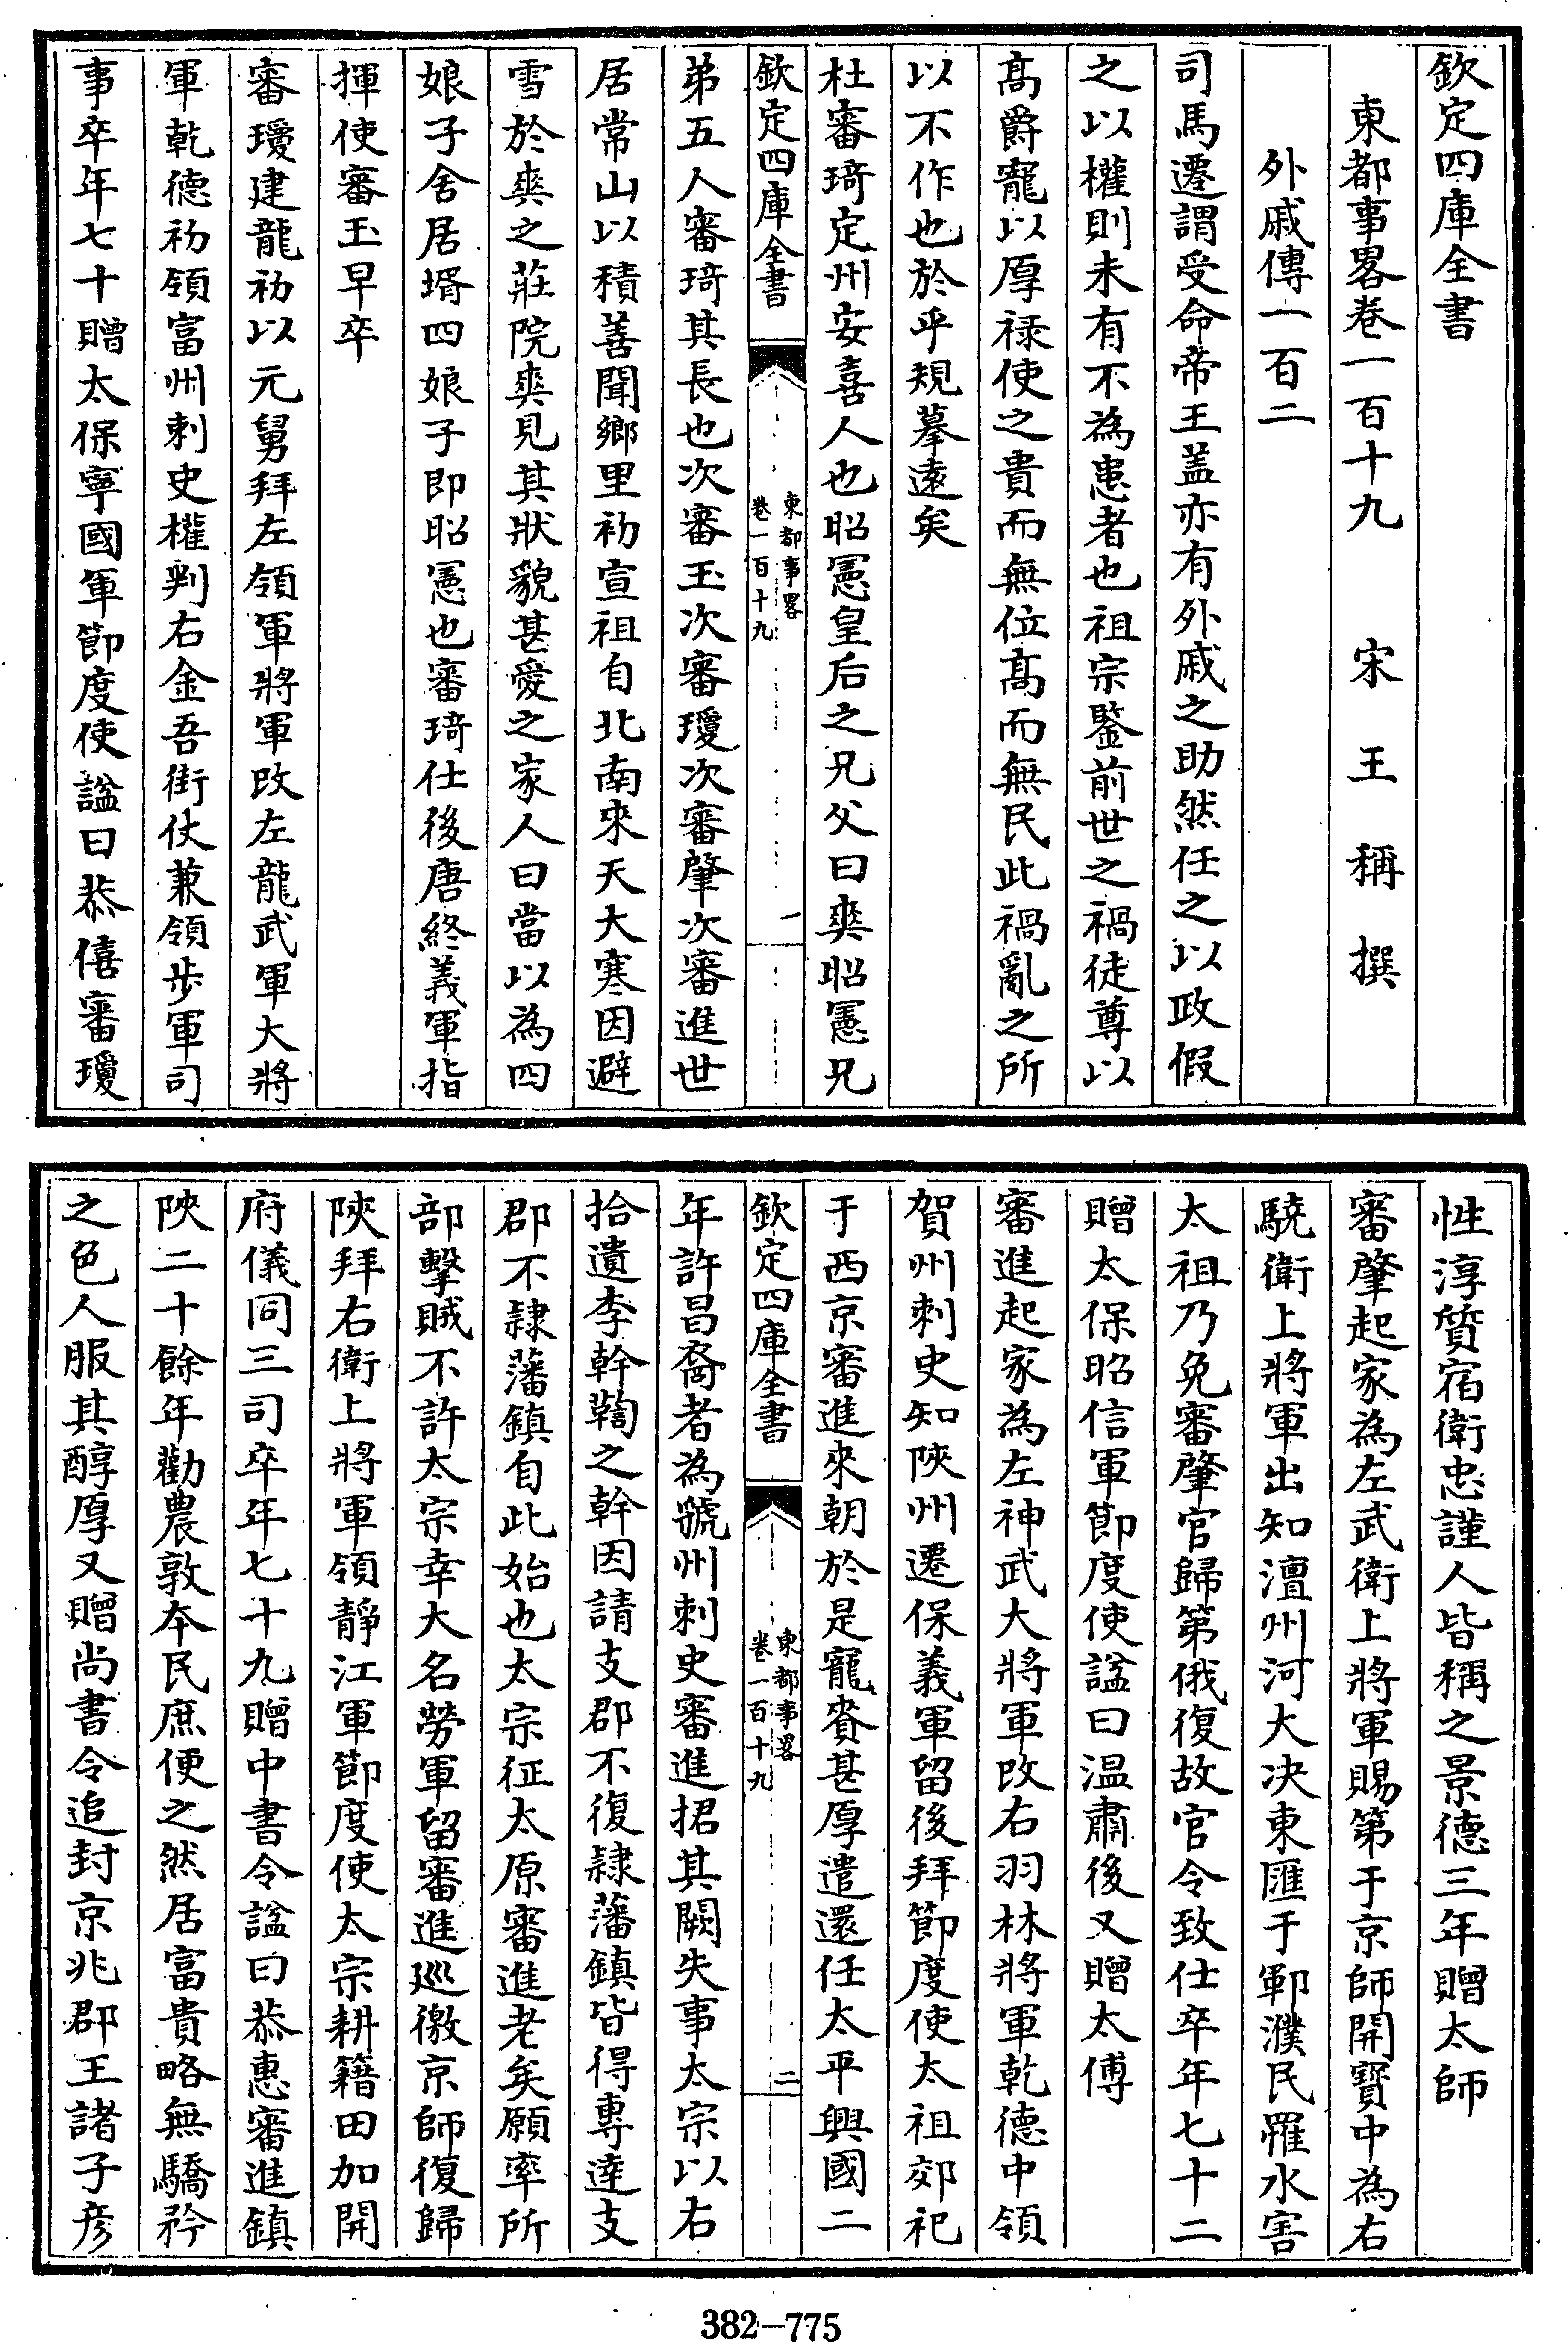 欽定四庫全書
東都事畧卷一百十九　宋　王　稱　撰
外戚傳一百二
司馬遷謂受命帝王盖亦有外戚之助然任之以政假
之以權則未有不為患者也祖宗鑒前世之禍徒尊以
髙爵寵以厚禄使之貴而無位髙而無民此禍亂之所
以不作也於乎規摹遠矣
杜審琦定州安喜人也昭憲皇后之兄父曰爽昭憲兄
欽定四庫全書
東都事畧
卷一百十九
一
弟五人審琦其長也次審玉次審瓊次審肇次審進世
居常山以積善聞鄉里初宣祖自北南來天大寒因避
雪於爽之莊院爽見其狀貌甚愛之家人曰當以為四
娘子舍居壻四娘子即昭憲也審琦仕後唐終義軍指
揮使審玉早卒
審瓊建龍初以元舅拜左領軍將軍改左龍武軍大將
軍乾德初領富州刺史權判右金吾街仗兼領步軍司
事卒年七十贈太保寧國軍節度使諡曰恭僖審瓊
性淳質宿衛忠謹人皆稱之景德三年贈太師
審肇起家為左武衛上將軍賜第于京師開寳中為右
驍衛上將軍出知澶州河大决東匯于鄆濮民罹水害
太祖乃免審肇官歸第俄復故官令致仕卒年七十二
贈太保昭信軍節度使諡曰温肅後又贈太傅
審進起家為左神武大將軍改右羽林將軍乾德中領
賀州刺史知陜州遷保義軍留後拜節度使太祖郊祀
于西京審進來朝於是寵賚甚厚遣還任太平興國二
欽定四庫全書
東都事畧
卷一百十九
二
年許昌裔者為虢州刺史審進捃其闕失事太宗以右
拾遺李幹鞫之幹因請支郡不復隷藩鎮皆得專達支
郡不隷藩鎮自此始也太宗征太原審進老矣願率所
部擊賊不許太宗幸大名勞軍留審進廵徼京師復歸
陜拜右衛上將軍領靜江軍節度使太宗耕籍田加開
府儀同三司卒年七十九贈中書令諡曰恭惠審進鎮
陜二十餘年勸農敦本民庶便之然居富貴略無驕矜
之色人服其醇厚又贈尚書令追封京兆郡王諸子彦
382-775